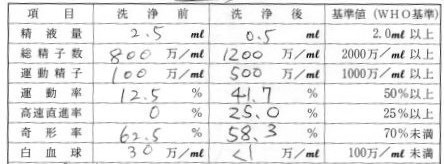 項目 洗浄前 洗浄後 基準値(WHO基準)
精液量 2.5 ml 0.5 ml 2.0ml以上
総精子数 800 万/ml 1200 万/ml 2000万/ml以上
運動精子 100 万/ml 500 万/ml 1000万/ml以上
運動率 12.5 % 41.7 % 50%以上
高速直進率 0 % 25.0 % 25%以上
奇形率 62.5 % 58.3 % 70%未満
白血球 30 万/ml <1 万/ml 100万/ml未満